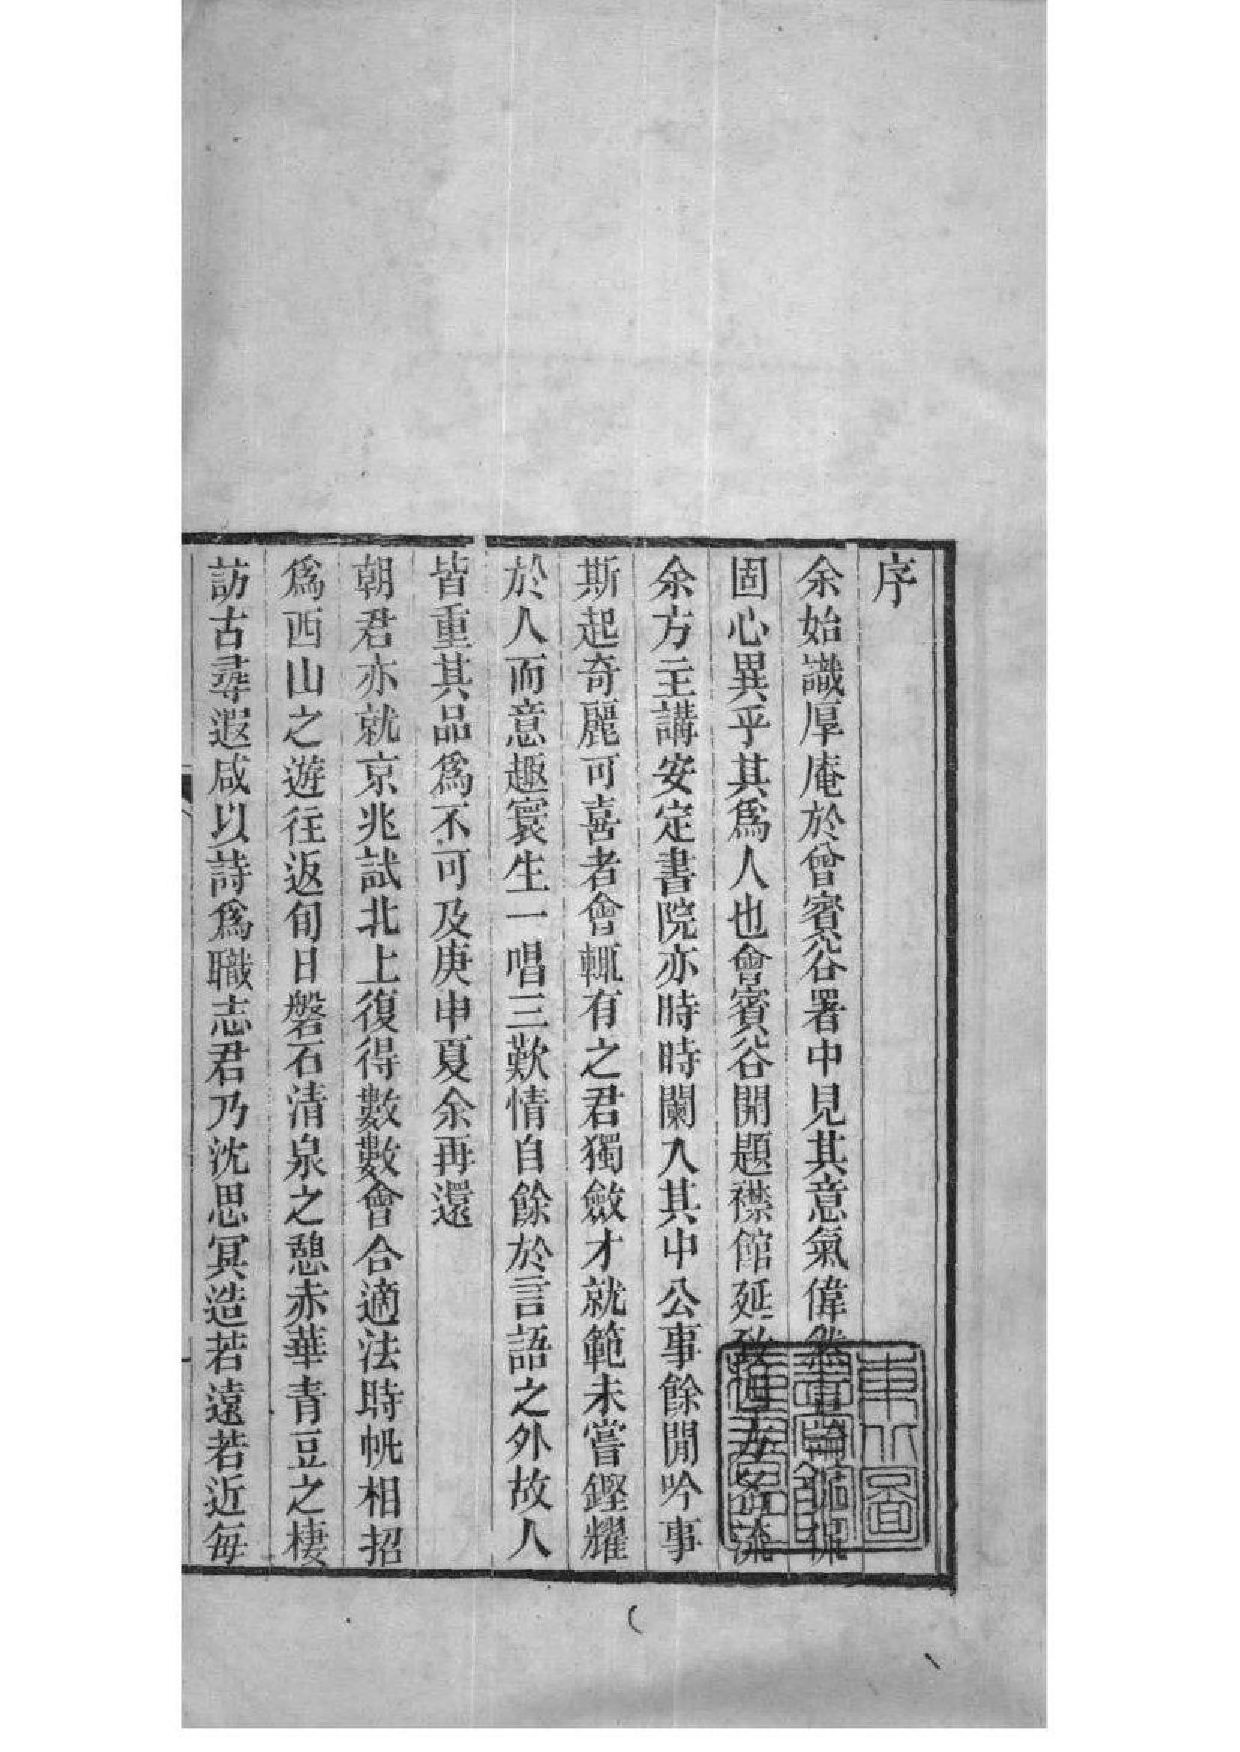 序
余始識厚庵於曾賓谷署中見其意氣偉然
固心異乎其爲人也會賓谷開題襟館延致四方名流
余方主講安定書院亦時時闌入其中公事餘閒吟事
斯起奇麗可喜者會輒有之君獨斂才就範未嘗鏗耀
於人而意趣寰生一唱三歎情自餘於言語之外故人
皆重其品爲不可及庚申夏余再還
朝君亦就京兆試北上復得數數會合適法時帆相招
爲西山之遊往返旬日磐石清泉之憩赤華青豆之棲
訪古尋遐咸以詩爲職志君乃沈思冥造若遠若近每